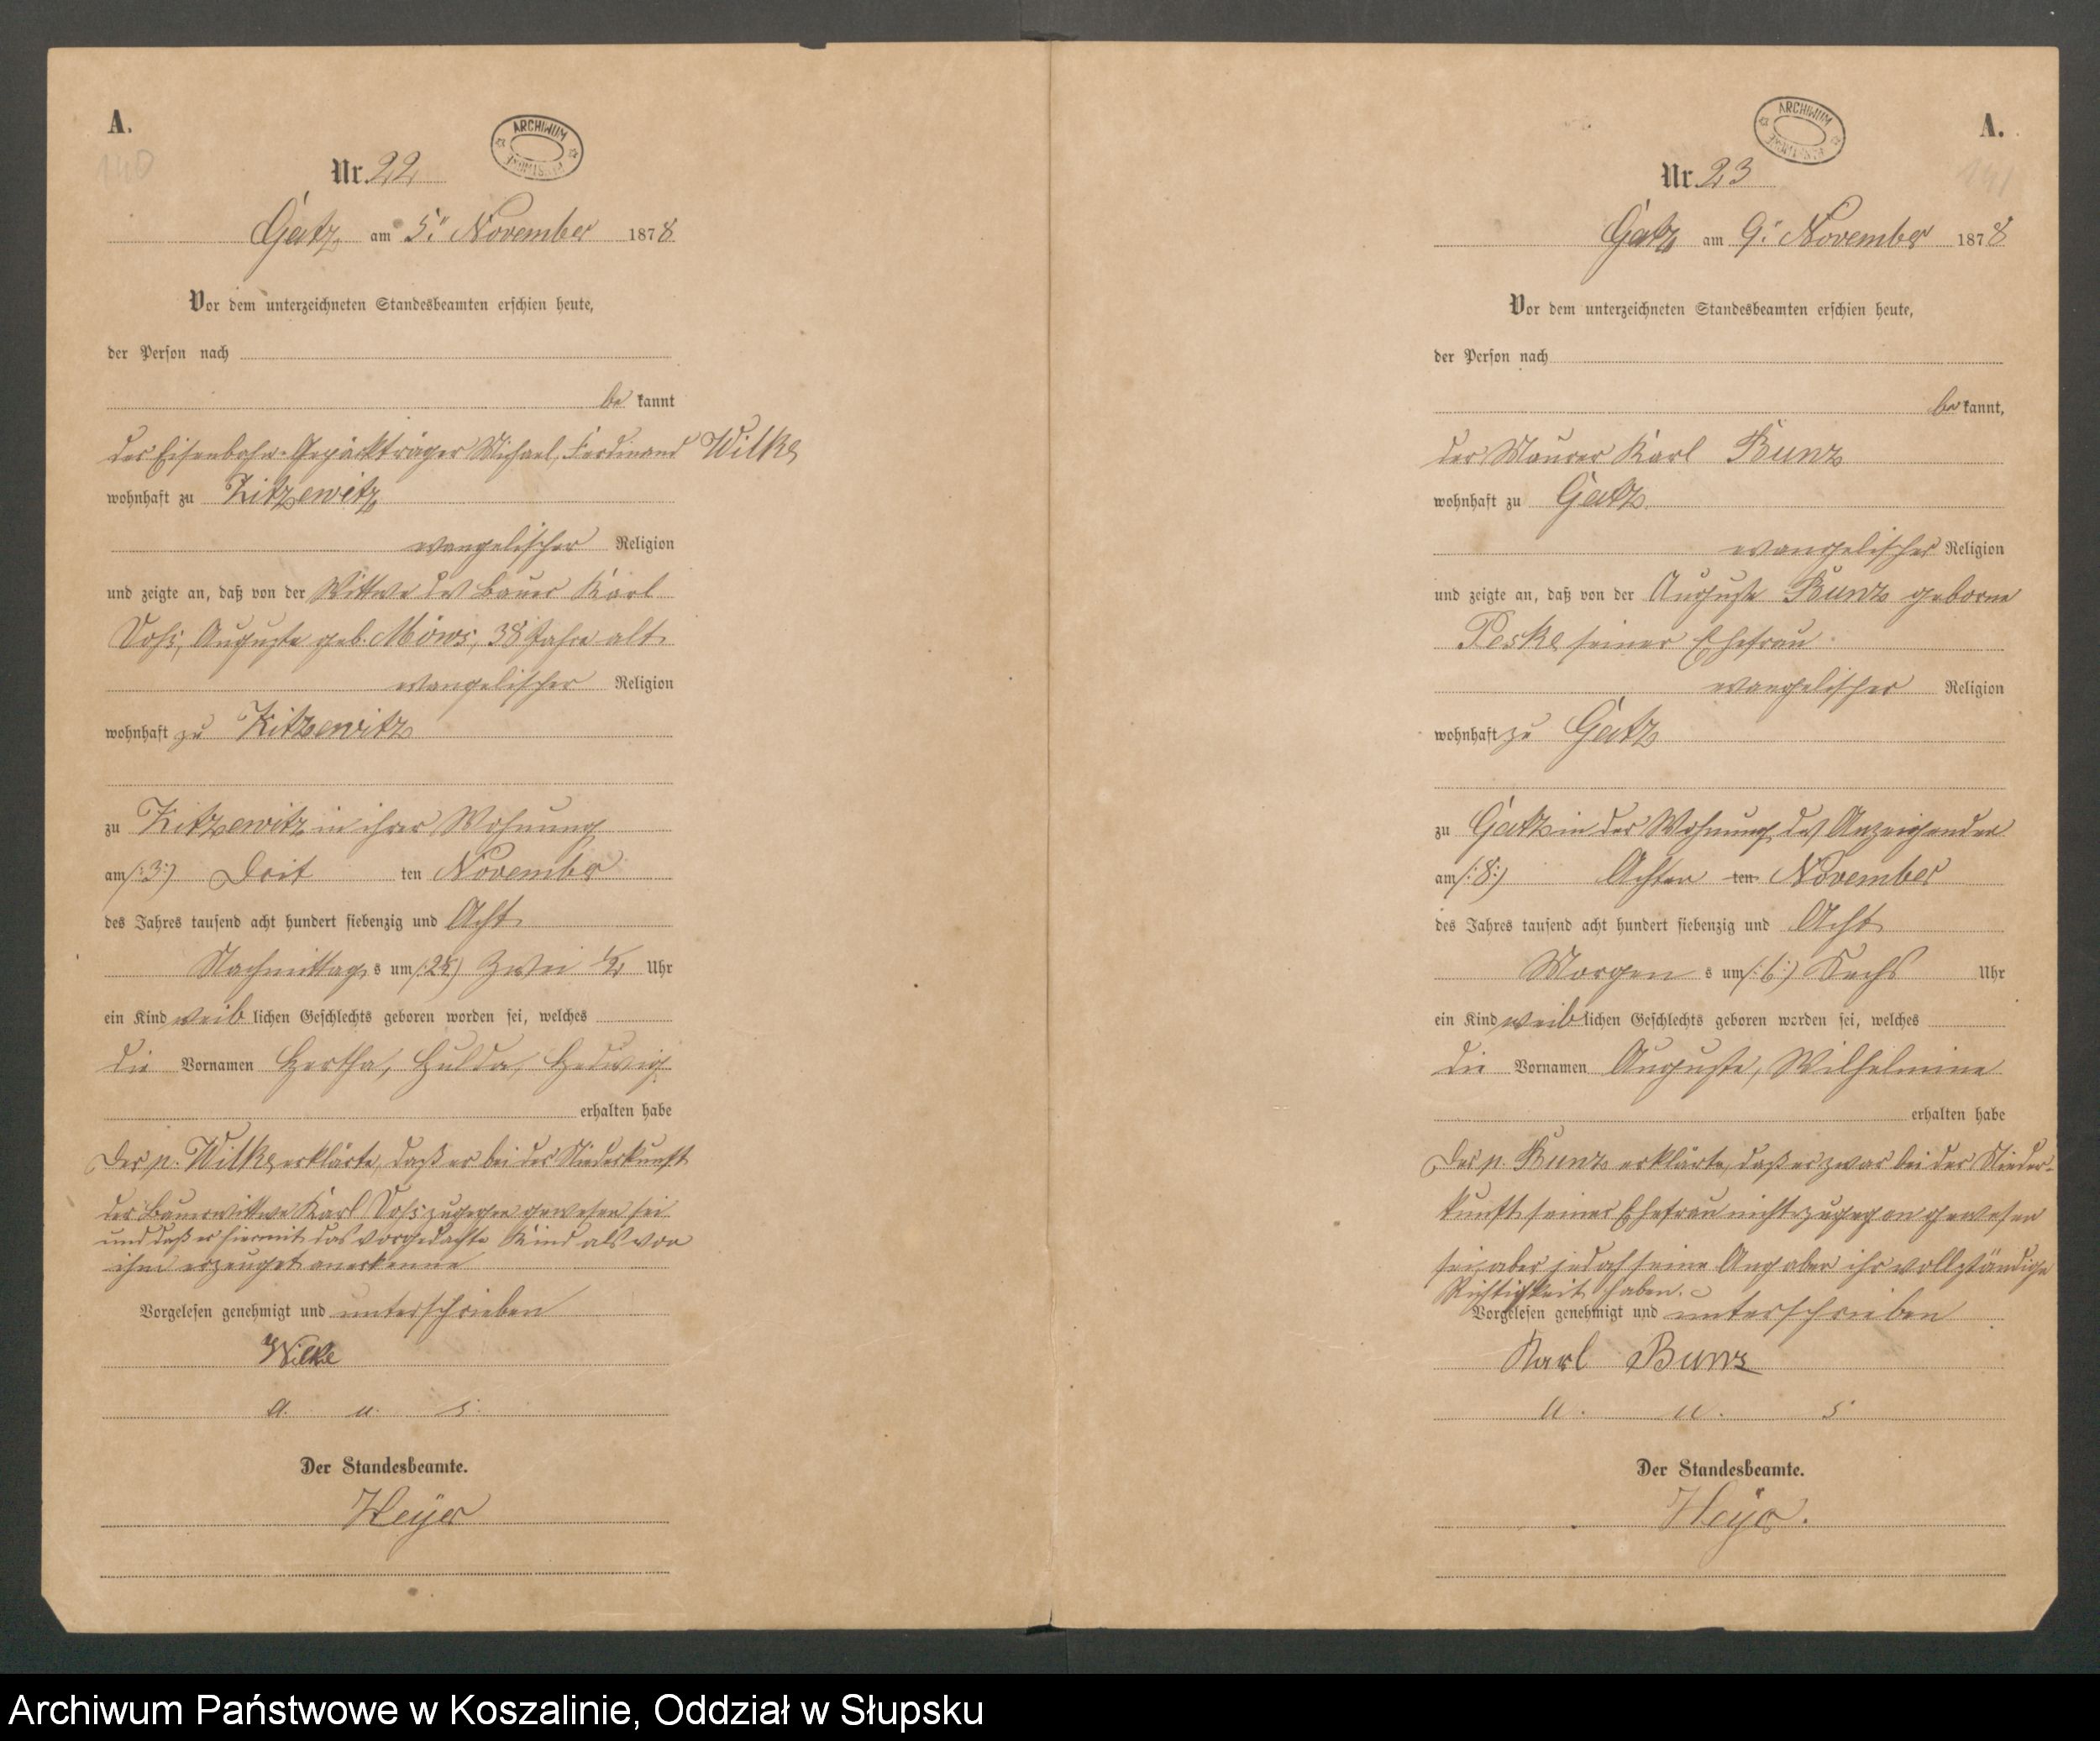 A.
140
ARCHIWUM
Nr. 22
Gatz am 5." November 1878
Vor dem unterzeichneten Standesbeamten erschien heute,
der Person nach
be kannt
der Eisenbahn-Gepäckträger Michael, Ferdinand Wilke
wohnhaft zu Zitzewitz
evangelischer Religion
und zeigte an, daß von der Wittwe des Bauer Karl
Voß, Auguste geb. Möws, 38 Jahre alt
evangelischer Religion
wohnhaft zu Kitzewitz
zu Zitzewitz in ihrer Wohnung
am /:3:/ Drit ten November
des Jahres tausend acht hundert siebenzig und Acht
Nachmittag s um /:2½/ Zwei ½ Uhr
ein Kind weib lichen Geschlechts geboren worden sei, welches
die Vornamen Hertha, Hulda, Hedwig
erhalten habe
Der p. Wilke erklärte, daß er bei der Niederkunft
der Bauerwittwe Karl Voß zugegen gewesen sei
und daß er hiermit das vorgedachte Kind als von
ihm erzeuget anerkenne
Vorgelesen genehmigt und unterschrieben
Wilke
a. u. s.
Der Standesbeamte.
Heyer
A.
141
ARCHIWUM
Nr. 23
Gatz am 9." November 1878
Vor dem unterzeichneten Standesbeamten erschien heute,
der Person nach
be kannt,
der Maurer Karl Bunz
wohnhaft zu Gatz
evangelischer Religion
und zeigte an, daß von der Auguste Bunz geborne
Peske seiner Ehefrau
evangelischer Religion
wohnhaft zu Gatz
zu Gatz in der Wohnung des Anzeigenden
am /:8:/ Achten ten November
des Jahres tausend acht hundert siebenzig und Acht
Morgen s um /:6:/ Sechs Uhr
ein Kind weib lichen Geschlechts geboren worden sei, welches
die Vornamen Auguste, Wilhelmine
erhalten habe
Der p. Bunz erklärte, daß er zwar bei der Nieder-
kunft seiner Ehefrau nicht zugegen gewesen
sei, aber jedoch seine Angaben ihr vollständige
Richtigkeit haben.
Vorgelesen genehmigt und unterschrieben
Karl Bunz
a. u. s.
Der Standesbeamte.
Heyer.
Archiwum Państwowe w Koszalinie, Oddział w Słupsku